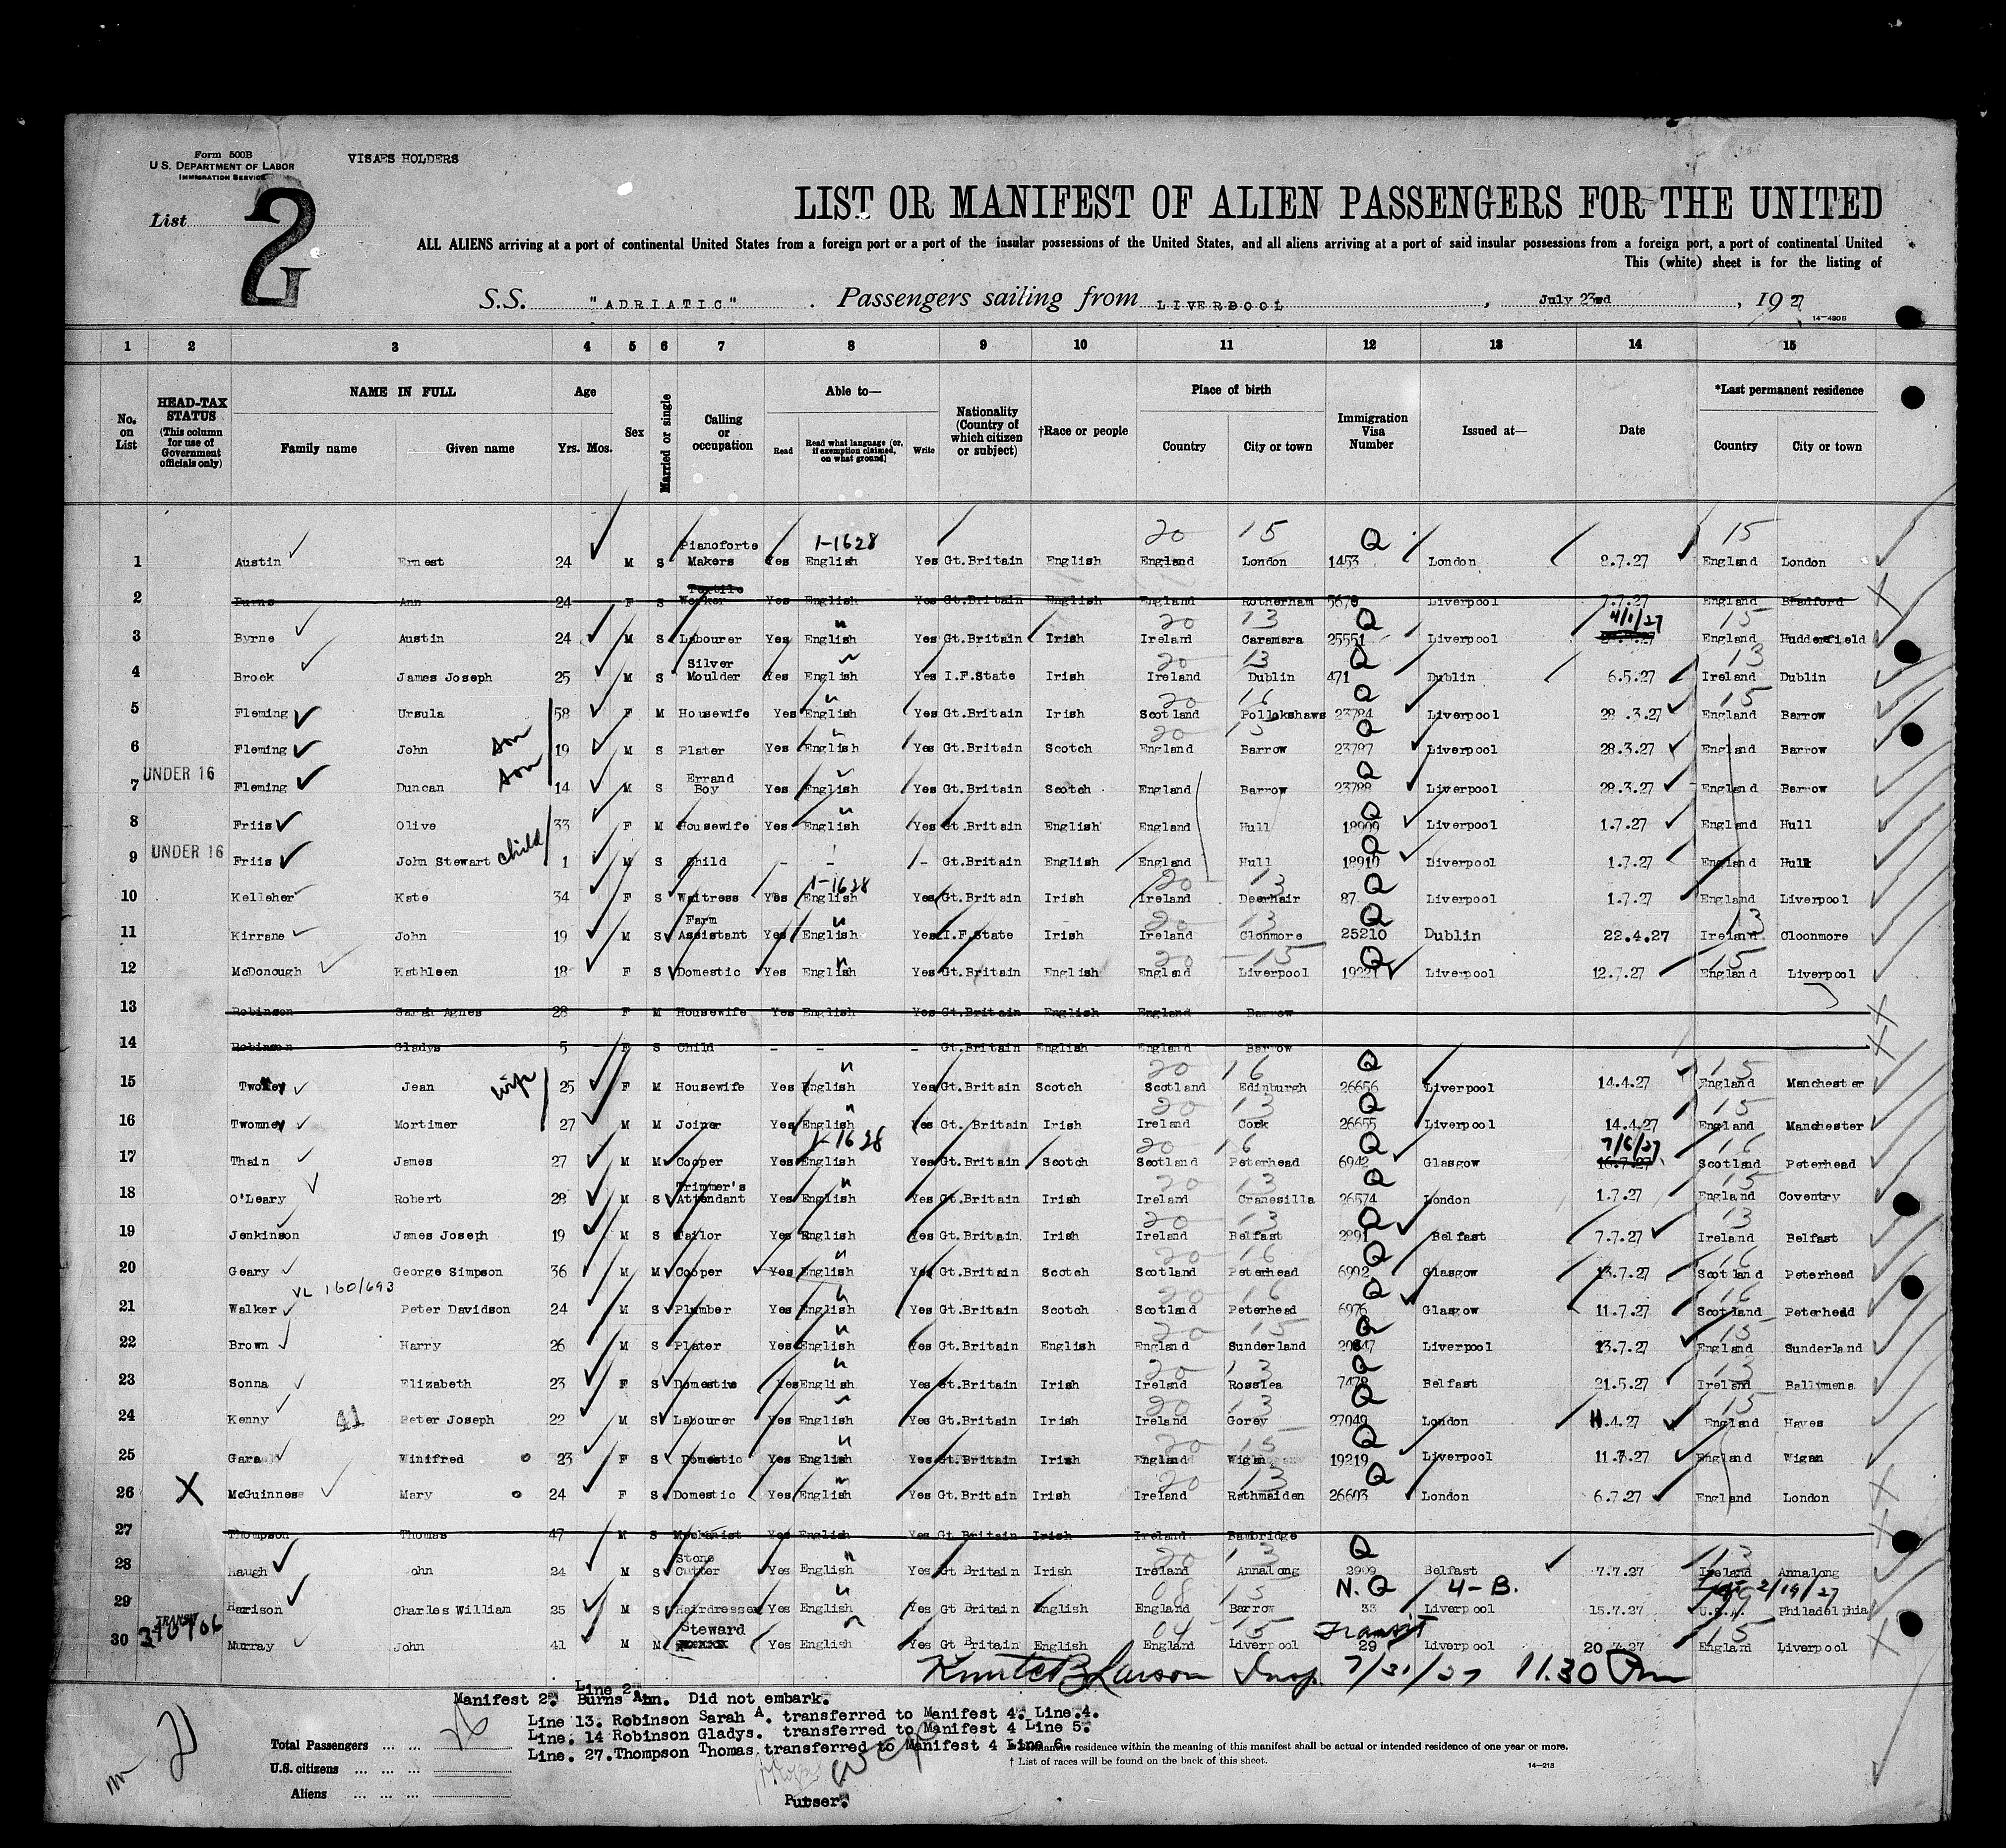 Form 500B
U.S. DEPARTMENT OF LABOR
IMMIGRATION SERVICE
VISAES HOLDERS
List 2
LIST OR MANIFEST OF ALIEN PASSENGERS FOR THE UNITED
ALL ALIENS arriving at a port of continental United States from a foreign port or a port of the insular possessions of the United States, and all aliens arriving at a port of said insular possessions from a foreign port, a port of continental United
This (white) sheet is for the listing of
S.S. "ADRIATIC". Passengers sailing from LIVERPOOL, July 23rd, 1927
14-430B
1 2 3 4 5 6 7 8 9 10 11 12 13 14 15
No. on List
HEAD-TAX STATUS (This column for use of Government officials only)
NAME IN FULL Family name Given name
Age Yrs. Mos.
Sex
Married or single
Calling or occupation
Able to— Read Read what language (or, if exemption claimed, on what ground) Write
Nationality (Country of which citizen or subject)
†Race or people
Place of birth Country City or town
Immigration Visa Number
Issued at—
Date
*Last permanent residence Country City or town
20 15 Q 15
1-1628
1 Austin Ernest 24 M S Pianoforte Makers Yes English Yes Gt.Britain English England London 1453 London 2.7.27 England London
2 Burns Ann 24 F S Textile Worker Yes English Yes Gt.Britain English England Rotherham 5678 Liverpool 7.7.27 England Bradford
20 13 Q 4/1/27 15
3 Byrne Austin 24 M S Labourer Yes English Yes Gt.Britain Irish Ireland Caramara 25551 Liverpool England Huddersfield
20 13 Q 13
4 Brock James Joseph 25 M S Silver Moulder Yes English Yes I.F.State Irish Ireland Dublin 471 Dublin 6.5.27 Ireland Dublin
20 16 Q 15
5 Fleming Ursula 58 F M Housewife Yes English Yes Gt.Britain Irish Scotland Pollokshaws 23784 Liverpool 28.3.27 England Barrow
20 15 Q
6 Fleming John son 19 M S Plater Yes English Yes Gt.Britain Scotch England Barrow 23787 Liverpool 28.3.27 England Barrow
UNDER 16 Q
7 Fleming Duncan son 14 M S Errand Boy Yes English Yes Gt.Britain Scotch England Barrow 23788 Liverpool 28.3.27 England Barrow
Q
8 Friis Olive 33 F M Housewife Yes English Yes Gt.Britain English England Hull 18909 Liverpool 1.7.27 England Hull
UNDER 16 Q
9 Friis John Stewart child 1 M S Child - - - Gt.Britain English England Hull 18910 Liverpool 1.7.27 England Hull
1-1628 20 13 Q
10 Kelleher Kate 34 F S Waitress Yes English Yes Gt.Britain Irish Ireland Deerhair 87 Liverpool 1.7.27 England Liverpool
20 13 Q 13
11 Kirrane John 19 M S Farm Assistant Yes English Yes I.F.State Irish Ireland Clonmore 25210 Dublin 22.4.27 Ireland Cloonmore
20 15 Q 15
12 McDonough Kathleen 18 F S Domestic Yes English Yes Gt.Britain English England Liverpool 19221 Liverpool 12.7.27 England Liverpool
13 Robinson Sarah Agnes 28 F M Housewife Yes English Yes Gt.Britain English England Barrow
14 Robinson Gladys 5 F S Child - - - Gt.Britain English England Barrow
20 16 Q 15
15 Twomey Jean wife 25 F M Housewife Yes English Yes Gt.Britain Scotch Scotland Edinburgh 26656 Liverpool 14.4.27 England Manchester
20 13 Q 15
16 Twomney Mortimer 27 M M Joiner Yes English Yes Gt. Britain Irish Ireland Cork 26655 Liverpool 14.4.27 England Manchester
1-1628 20 16 Q 7/6/27 16
17 Thain James 27 M M Cooper Yes English Yes Gt.Britain Scotch Scotland Peterhead 6942 Glasgow 16.7.27 Scotland Peterhead
20 13 Q 15
18 O'Leary Robert 28 M S Trimmer's Attendant Yes English Yes Gt.Britain Irish Ireland Cranesilla 26574 London 1.7.27 England Coventry
20 13 Q 13
19 Jenkinson James Joseph 19 M S Tailor Yes English Yes Gt.Britain Irish Ireland Belfast 2891 Belfast 7.7.27 Ireland Belfast
20 16 Q 16
20 Geary George Simpson 36 M M Cooper Yes English Yes Gt.Britain Scotch Scotland Peterhead 6992 Glasgow 13.7.27 Scotland Peterhead
VL 160/693
20 16 Q 16
21 Walker Peter Davidson 24 M S Plumber Yes English Yes Gt.Britain Scotch Scotland Peterhead 6976 Glasgow 11.7.27 Scotland Peterhead
20 15 Q 15
22 Brown Harry 26 M S Plater Yes English Yes Gt.Britain English England Sunderland Liverpool 13.7.27 England Sunderland
20 13 Q 13
23 Sonna Elizabeth 23 F S Domestic Yes English Yes Gt.Britain Irish Ireland Rosslea 7478 Belfast 21.5.27 Ireland Ballymena
20 13 Q 15
24 Kenny 41 Peter Joseph 22 M S Labourer Yes English Yes Gt.Britain Irish Ireland Gorey 27049 London 11.4.27 England Hayes
20 15 Q
25 Gara Winifred 23 F S Domestic Yes English Yes Gt.Britain Irish England Wigan 19219 Liverpool 11.7.27 England Wigan
20 13 Q
26 X McGuinness Mary 24 F S Domestic Yes English Yes Gt.Britain Irish Ireland Rathmaiden 26603 London 6.7.27 England London
27 Thompson Thomas 47 M S Mechanist Yes English Yes Gt Britain Irish Ireland Bambridge
20 13 Q 13
28 Haugh John 24 M S Stone Cutter Yes English Yes Gt Britain Irish Ireland Annalong 2909 Belfast 7.7.27 Ireland Annalong
08 15 N.Q 4-B. 2/19/27
29 Harison Charles William 25 M S Hairdresser Yes English Yes Gt Britain English England Barrow 33 Liverpool 15.7.27 U.S.A. Philadelphia
TRANSIT 04 15 Transit 15
30 Murray John 41 M M Steward Yes English Yes Gt Britain English England Liverpool 29 Liverpool 20.7.27 England Liverpool
Knute B Larson Insp. 7/31/27 11.30 Pm
Manifest 2. Line 2. Burns Ann. Did not embark.
Line 13. Robinson Sarah A. transferred to Manifest 4. Line 4.
Line. 14 Robinson Gladys. transferred to Manifest 4 Line 5.
Line. 27. Thompson Thomas transferred to Manifest 4 Line 6.
Total Passengers
U.S. citizens
Aliens
Purser.
* Permanent residence within the meaning of this manifest shall be actual or intended residence of one year or more.
† List of races will be found on the back of this sheet.
14-213